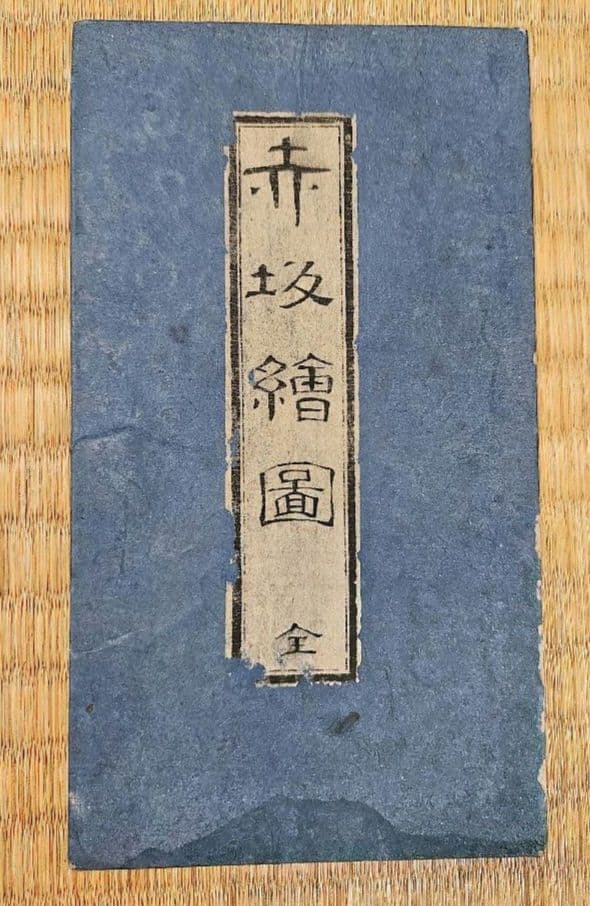 赤坂繪圖 全